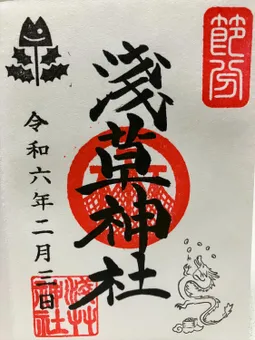 節分
浅草神社
令和六年二月三日
浅草
神社